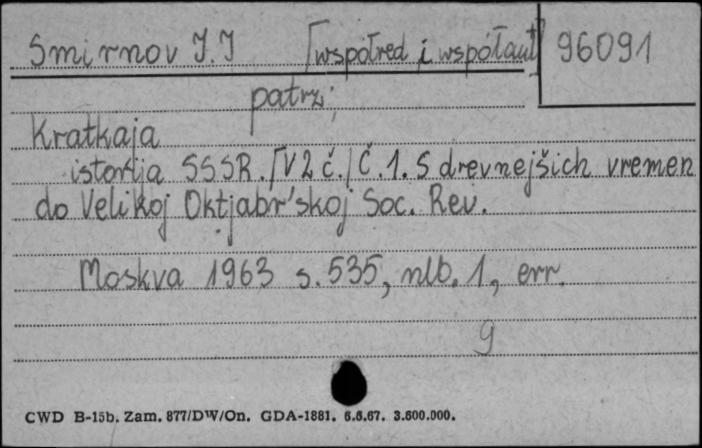 Smirnov J.J [współred i współaut] 96091
patrz:
Kratkaja
istorija SSSR. [V 2 č.] Č. 1. S drevnejšich vremen
do Velikoj Oktjabr'skoj Soc. Rev.
Moskva 1963 s. 535, nlb. 1, err.
g
CWD B-15b. Zam. 877/DW/On. GDA-1881. 6.6.67. 3.600.000.